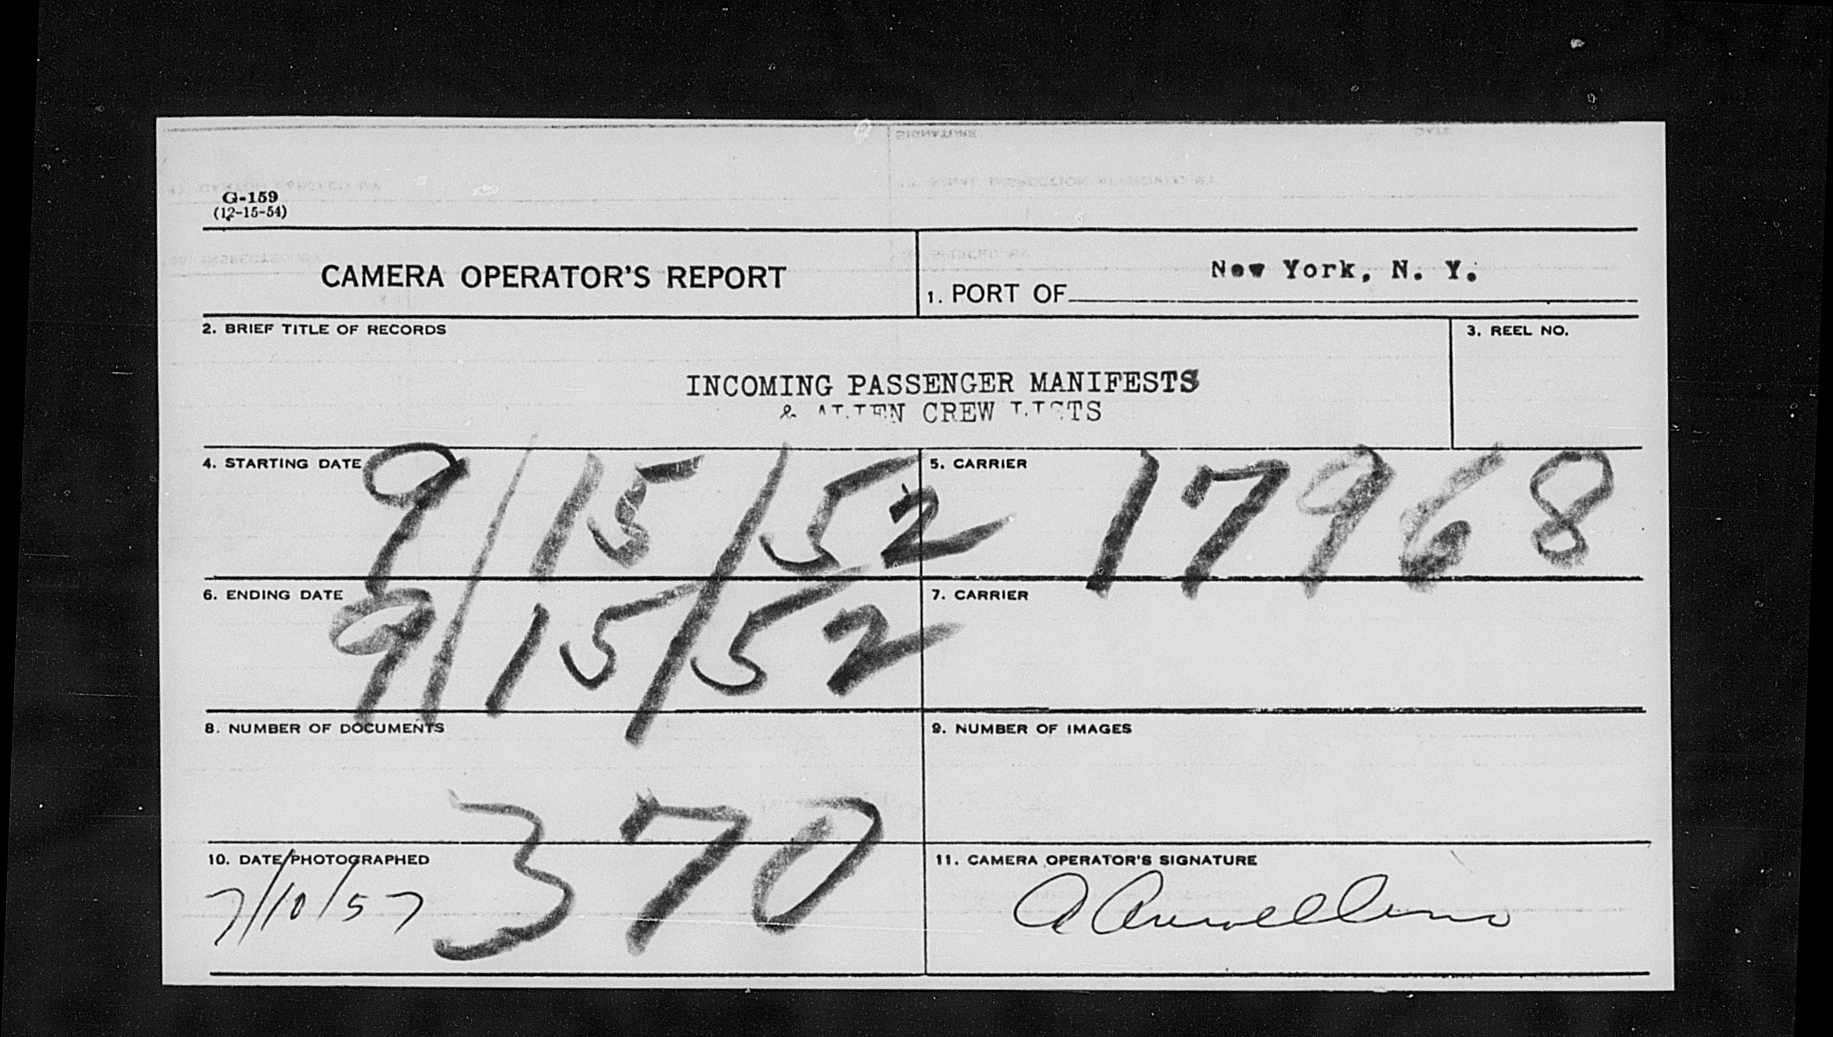 G-159
(12-15-54)
CAMERA OPERATOR'S REPORT
1. PORT OF New York, N. Y.
2. BRIEF TITLE OF RECORDS
3. REEL NO.
INCOMING PASSENGER MANIFESTS
& ALIEN CREW LISTS
4. STARTING DATE 9/15/52
5. CARRIER 17968
6. ENDING DATE 9/15/52
7. CARRIER
8. NUMBER OF DOCUMENTS
9. NUMBER OF IMAGES
370
10. DATE PHOTOGRAPHED
7/10/57
11. CAMERA OPERATOR'S SIGNATURE